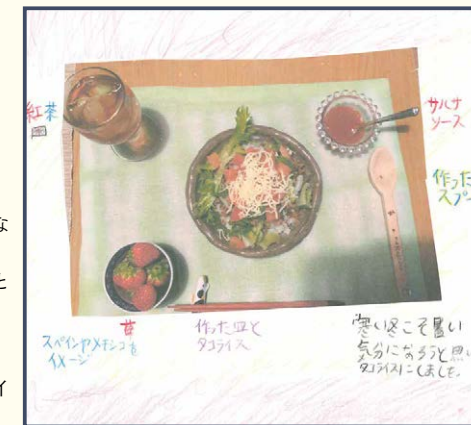 紅茶
サルサ
ソース
作った
スプ
な
と
イ
苺
スペインやメキシコを
イメージ
作った皿と
タコライス
寒い冬こそ暑い
気分になろうと思い
タコライスにしました。